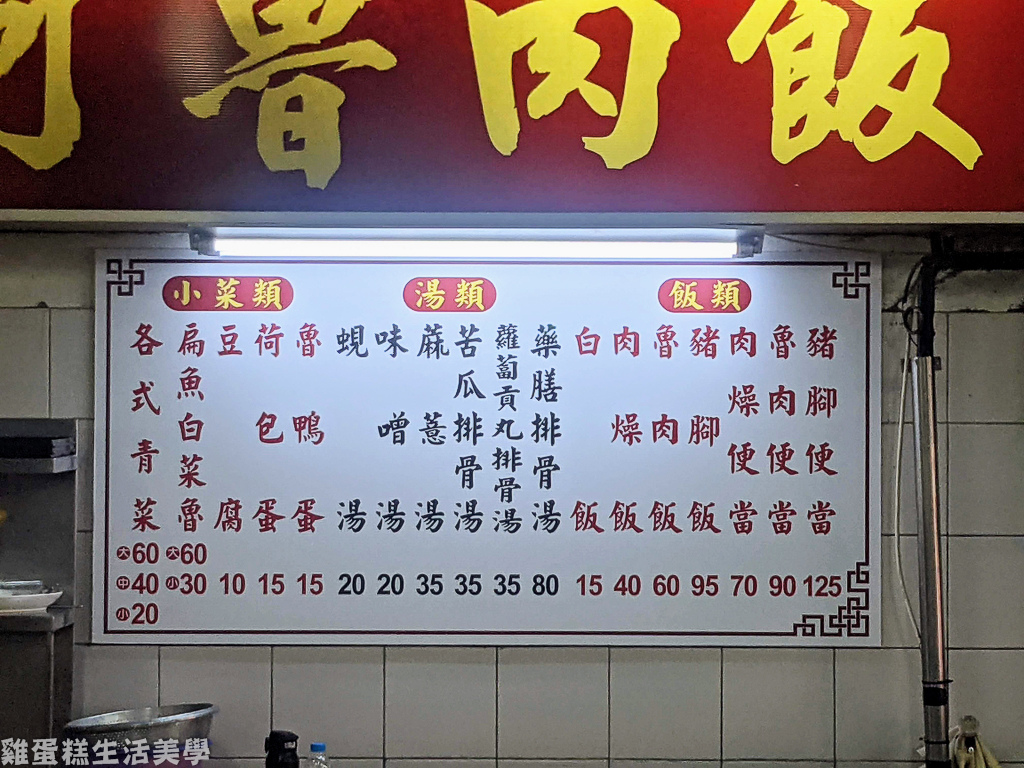 魯肉飯
飯類
豬腳便當 125
魯肉便當 90
肉燥便當 70
豬腳飯 95
魯肉飯 60
肉燥飯 40
白飯 15
湯類
藥膳排骨湯 80
蘿蔔貢丸排骨湯 35
苦瓜排骨湯 35
蔴薏湯 35
味噌湯 20
蜆湯 20
小菜類
魯鴨蛋 15
荷包蛋 15
豆腐 10
扁魚白菜魯 大60 小30
各式青菜 大60 中40 小20
雞蛋糕生活美學